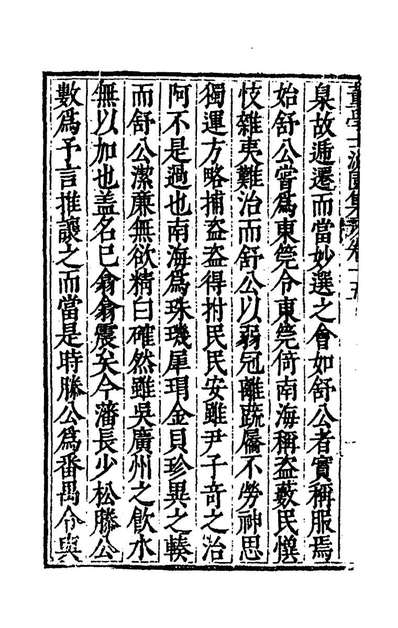 董學士泌園集卷十五
臬故遞遷而當妙選之會如舒公者實稱服焉
始舒公嘗爲東筦令東筦倚南海稱盜藪民
忮雜夷難治而舒公以弱冠離蔬屩不勞神思
獨運方略捕盜盜得拊民民安雖尹子奇之治
阿不是過也南海爲珠璣犀瑁金貝珍異之輳
而舒公潔廉無欲精曰確然雖吳廣州之飲水
無以加也盖名已翕翕震矣今藩長少松滕公
數爲予言推讓之而當是時滕公爲番禺令與